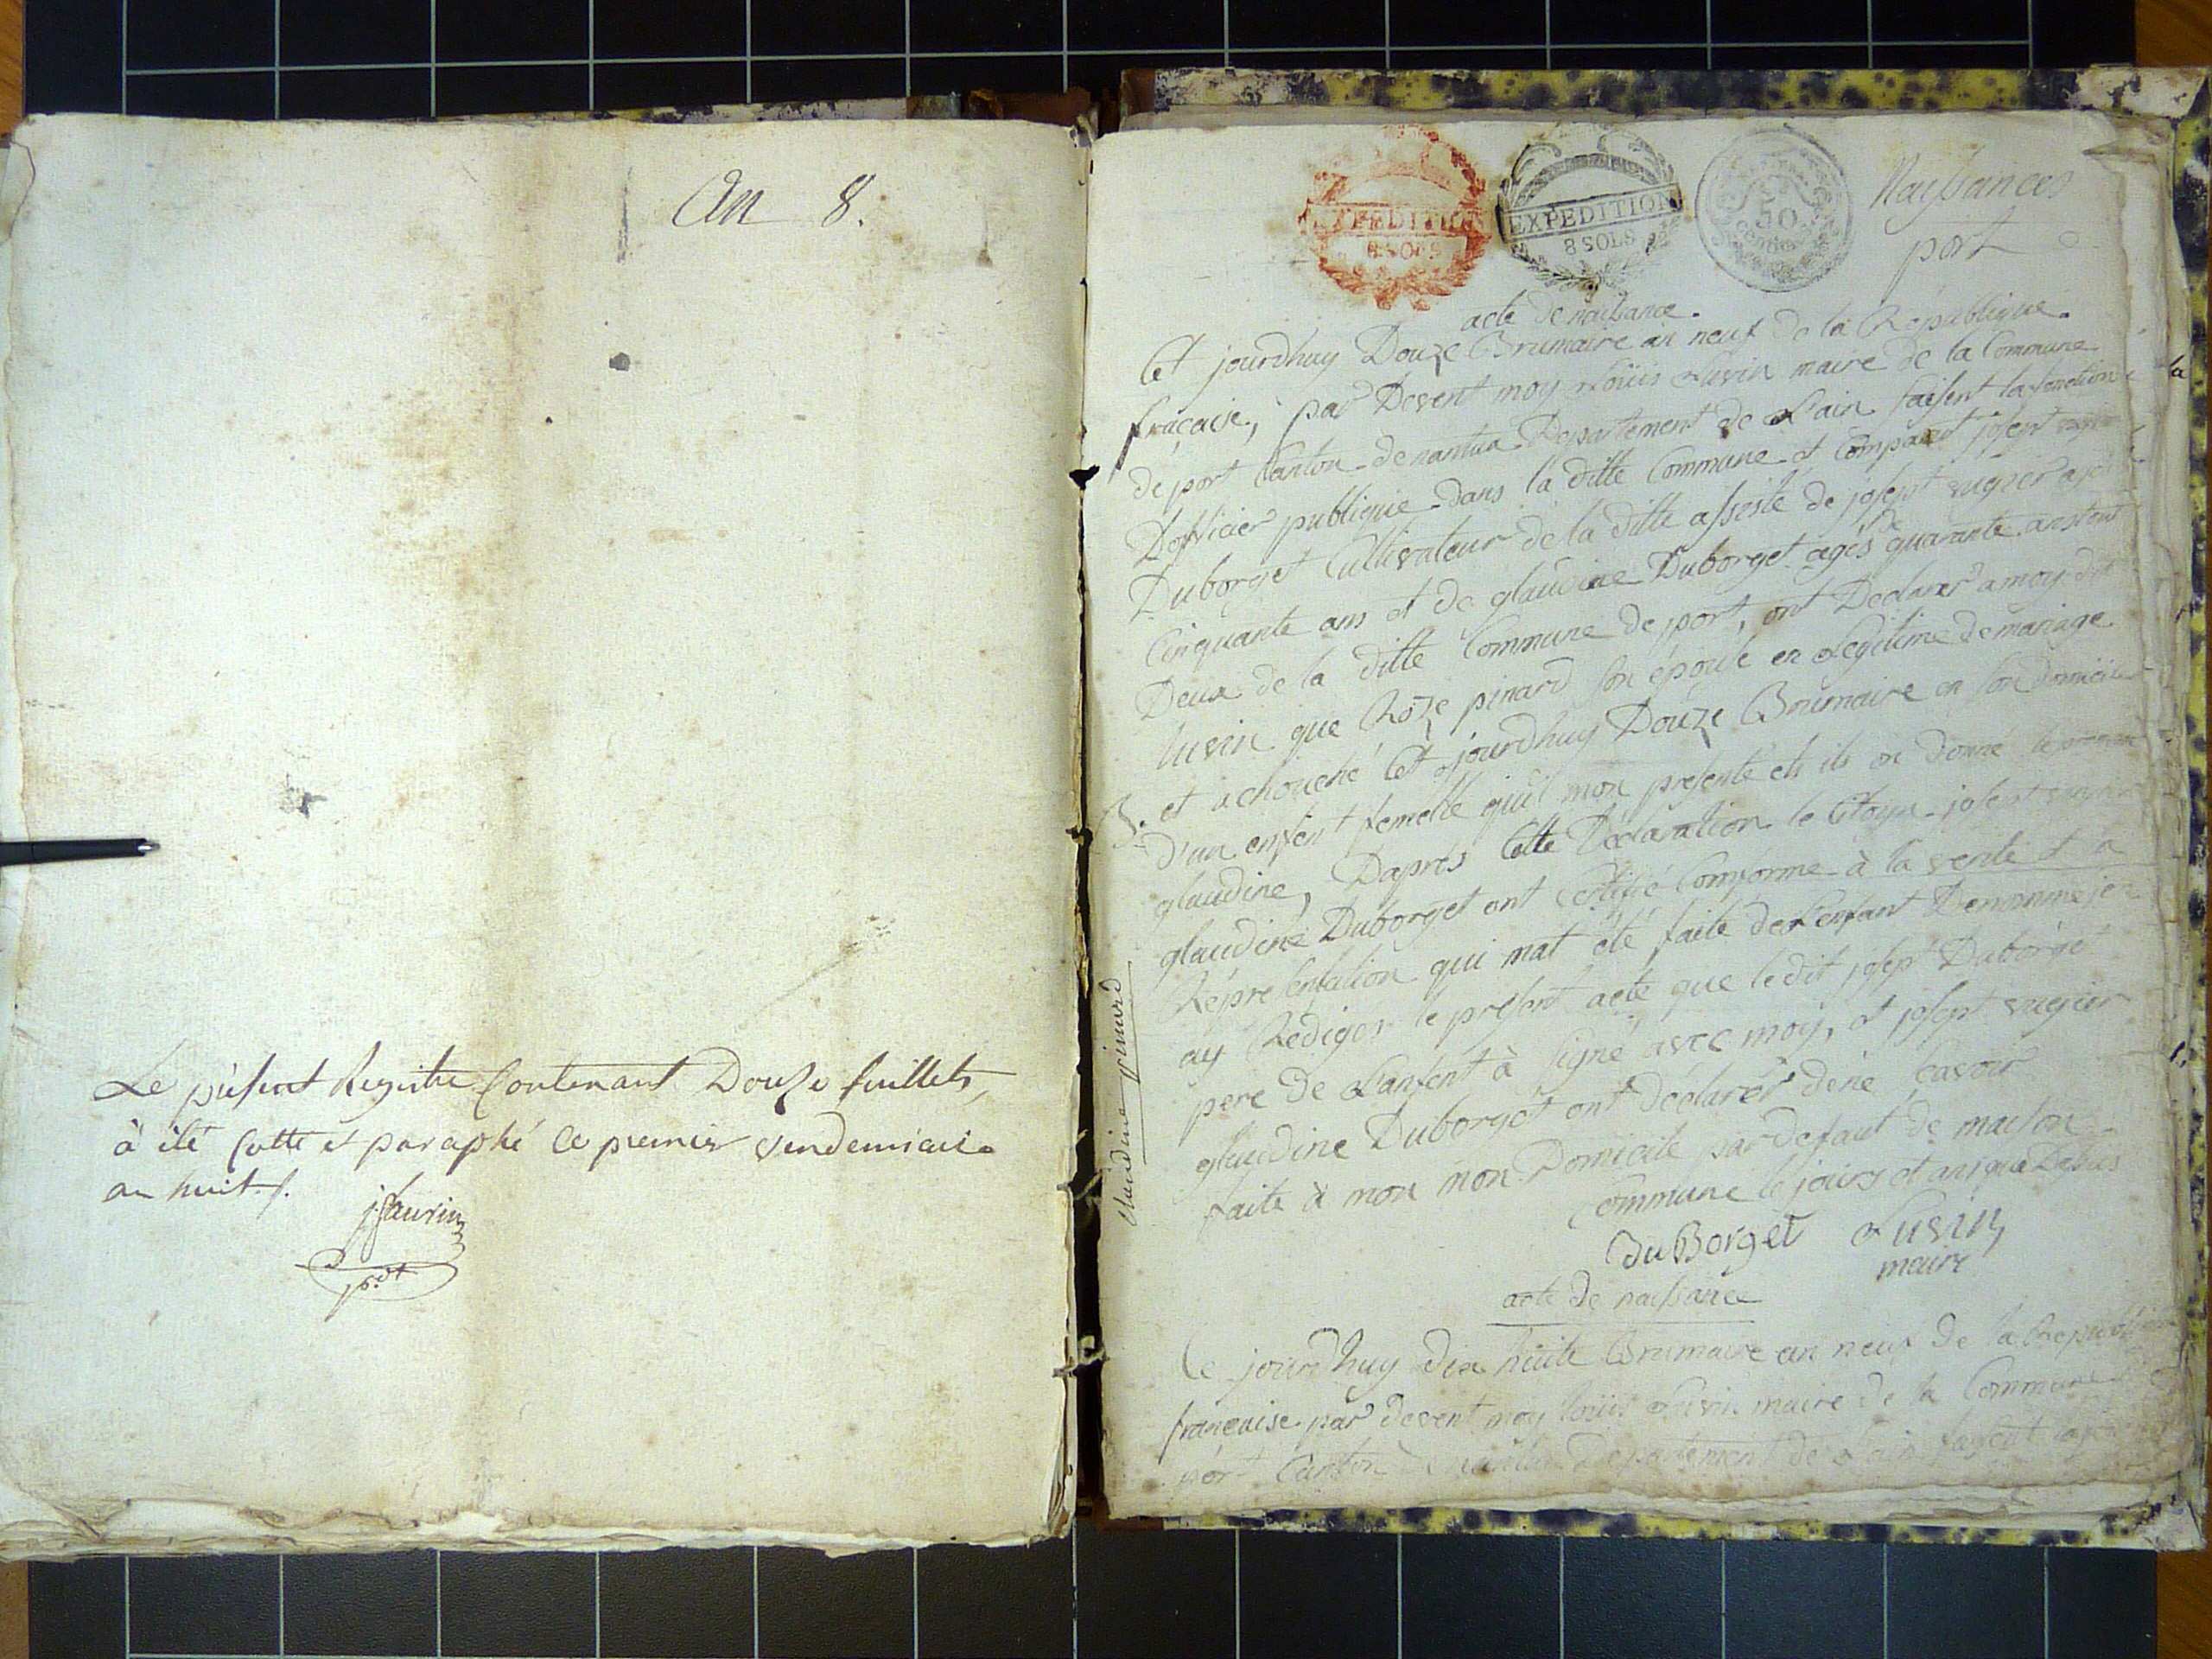 An 8.
Le présent Registre Contenant Douze feuillets,
à été Cotté et paraphé le premier vendemiaire
an huit ./.
jfaurin
p.dt
EXPEDITION
8 SOLS
EXPEDITION
8 SOLS
50
Naissances
port
acte de naissance.
Cet jourdhuy Douze Brumaire an neuf de la République
fracaise, par Devent moy Loüis Luvin maire de la Commune
de port Canton de nantua Departement de L'ain faisent la fonction
Dofficier publique dans la ditte Commune et Comparet josept
Duborget Cultivateur de la ditte assesté de josept vugier agé
Cinquante ans et de glaudine Duborget agés de quarante ans tout
Deux de la ditte Commune de port, ont Declarer a moy dit
luvin que Roze pinard son épouse en Legitime de mariage
et achouché Cet jourdhuy Douze Brumaire en son domicile
d'un enfent femelle quil mon presenté els ils on donné le
glaudine, Daprès Cette Déclaration le Citoyn josept
glaudine Duborget ont Certifié Comforme à la verité et a
Réprésentation qui mat été faite de L'enfant Denommé jen
ay Rediger le présent acte que le dit josept Duborget
pere de L'anfent à signé avec moy, et josept vugier
glaudine Duborget ont déclarér de né savoir
faite à mon mon Domicile par defaut de maison
Commune le jours et an que Desus
Claudine pinard
duBorget Luvin
maire
acte de naissance
Ce jourdhuy dix huite Brumaire an neuf de la Republique
francaise par devent moy loüis Luvin maire de la Commune
port Canton de nantua Departement de Lain